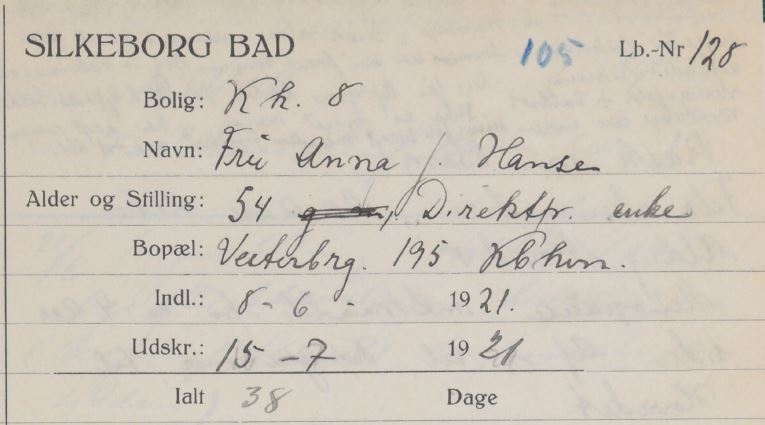 SILKEBORG BAD 105 Lb.-Nr 128
Bolig: Kh. 8
Navn: Fru Anna J. Hansen
Alder og Stilling: 54 Direktør. enke
Bopæl: Vesterbrg. 195 Kbhvn.
Indl.: 8 - 6 - 1921.
Udskr.: 15 - 7 1921
Ialt 38 Dage